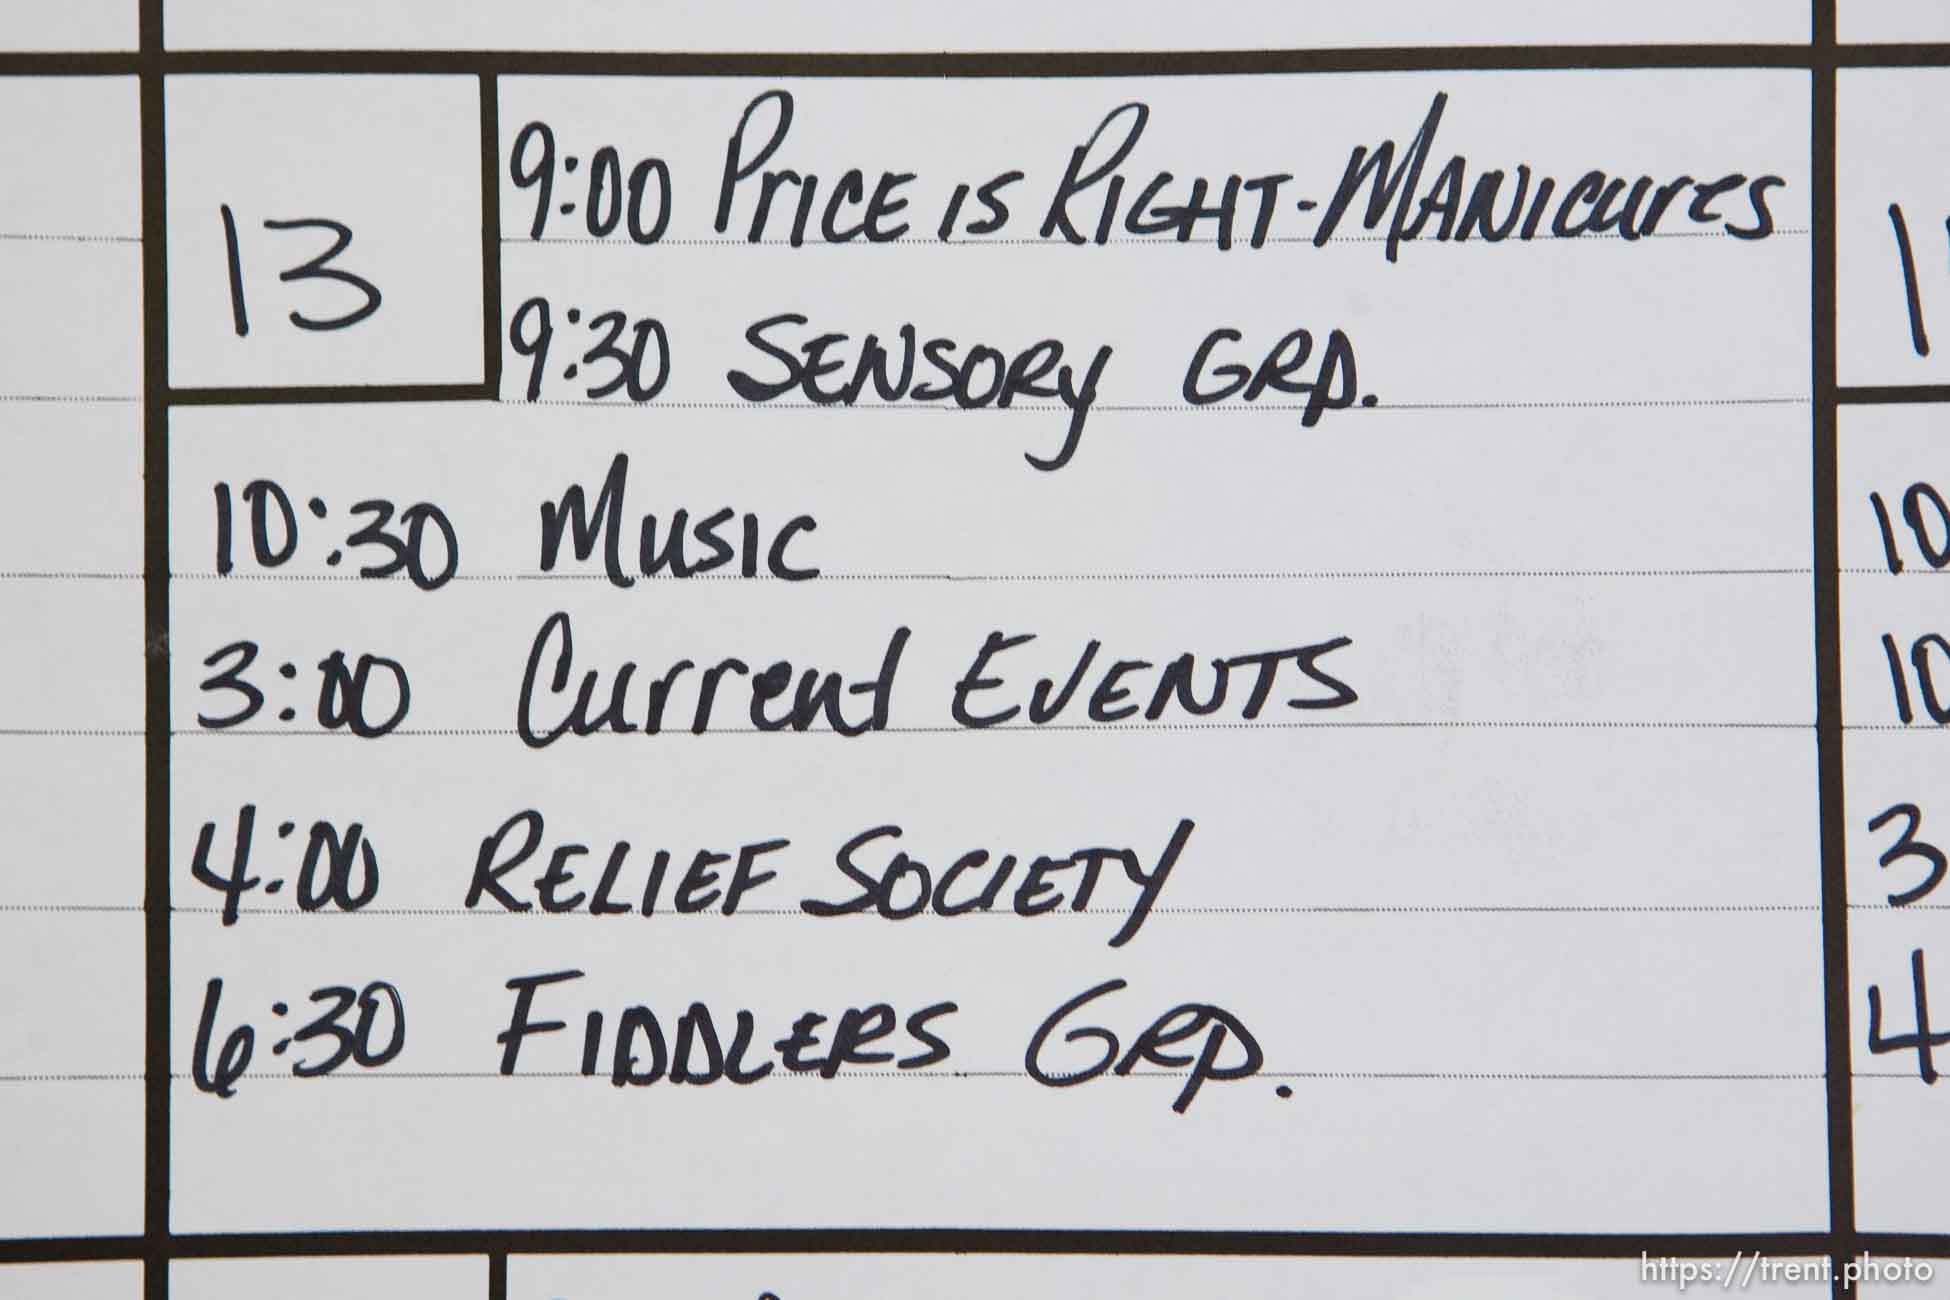 13
9:00 PRICE IS RIGHT-MANICURES
9:30 SENSORY GRP.
10:30 MUSIC
3:00 Current EVENTS
4:00 RELIEF SOCIETY
6:30 FIDDLERS GRP.
1
10
10
3
4
https://trent.photo